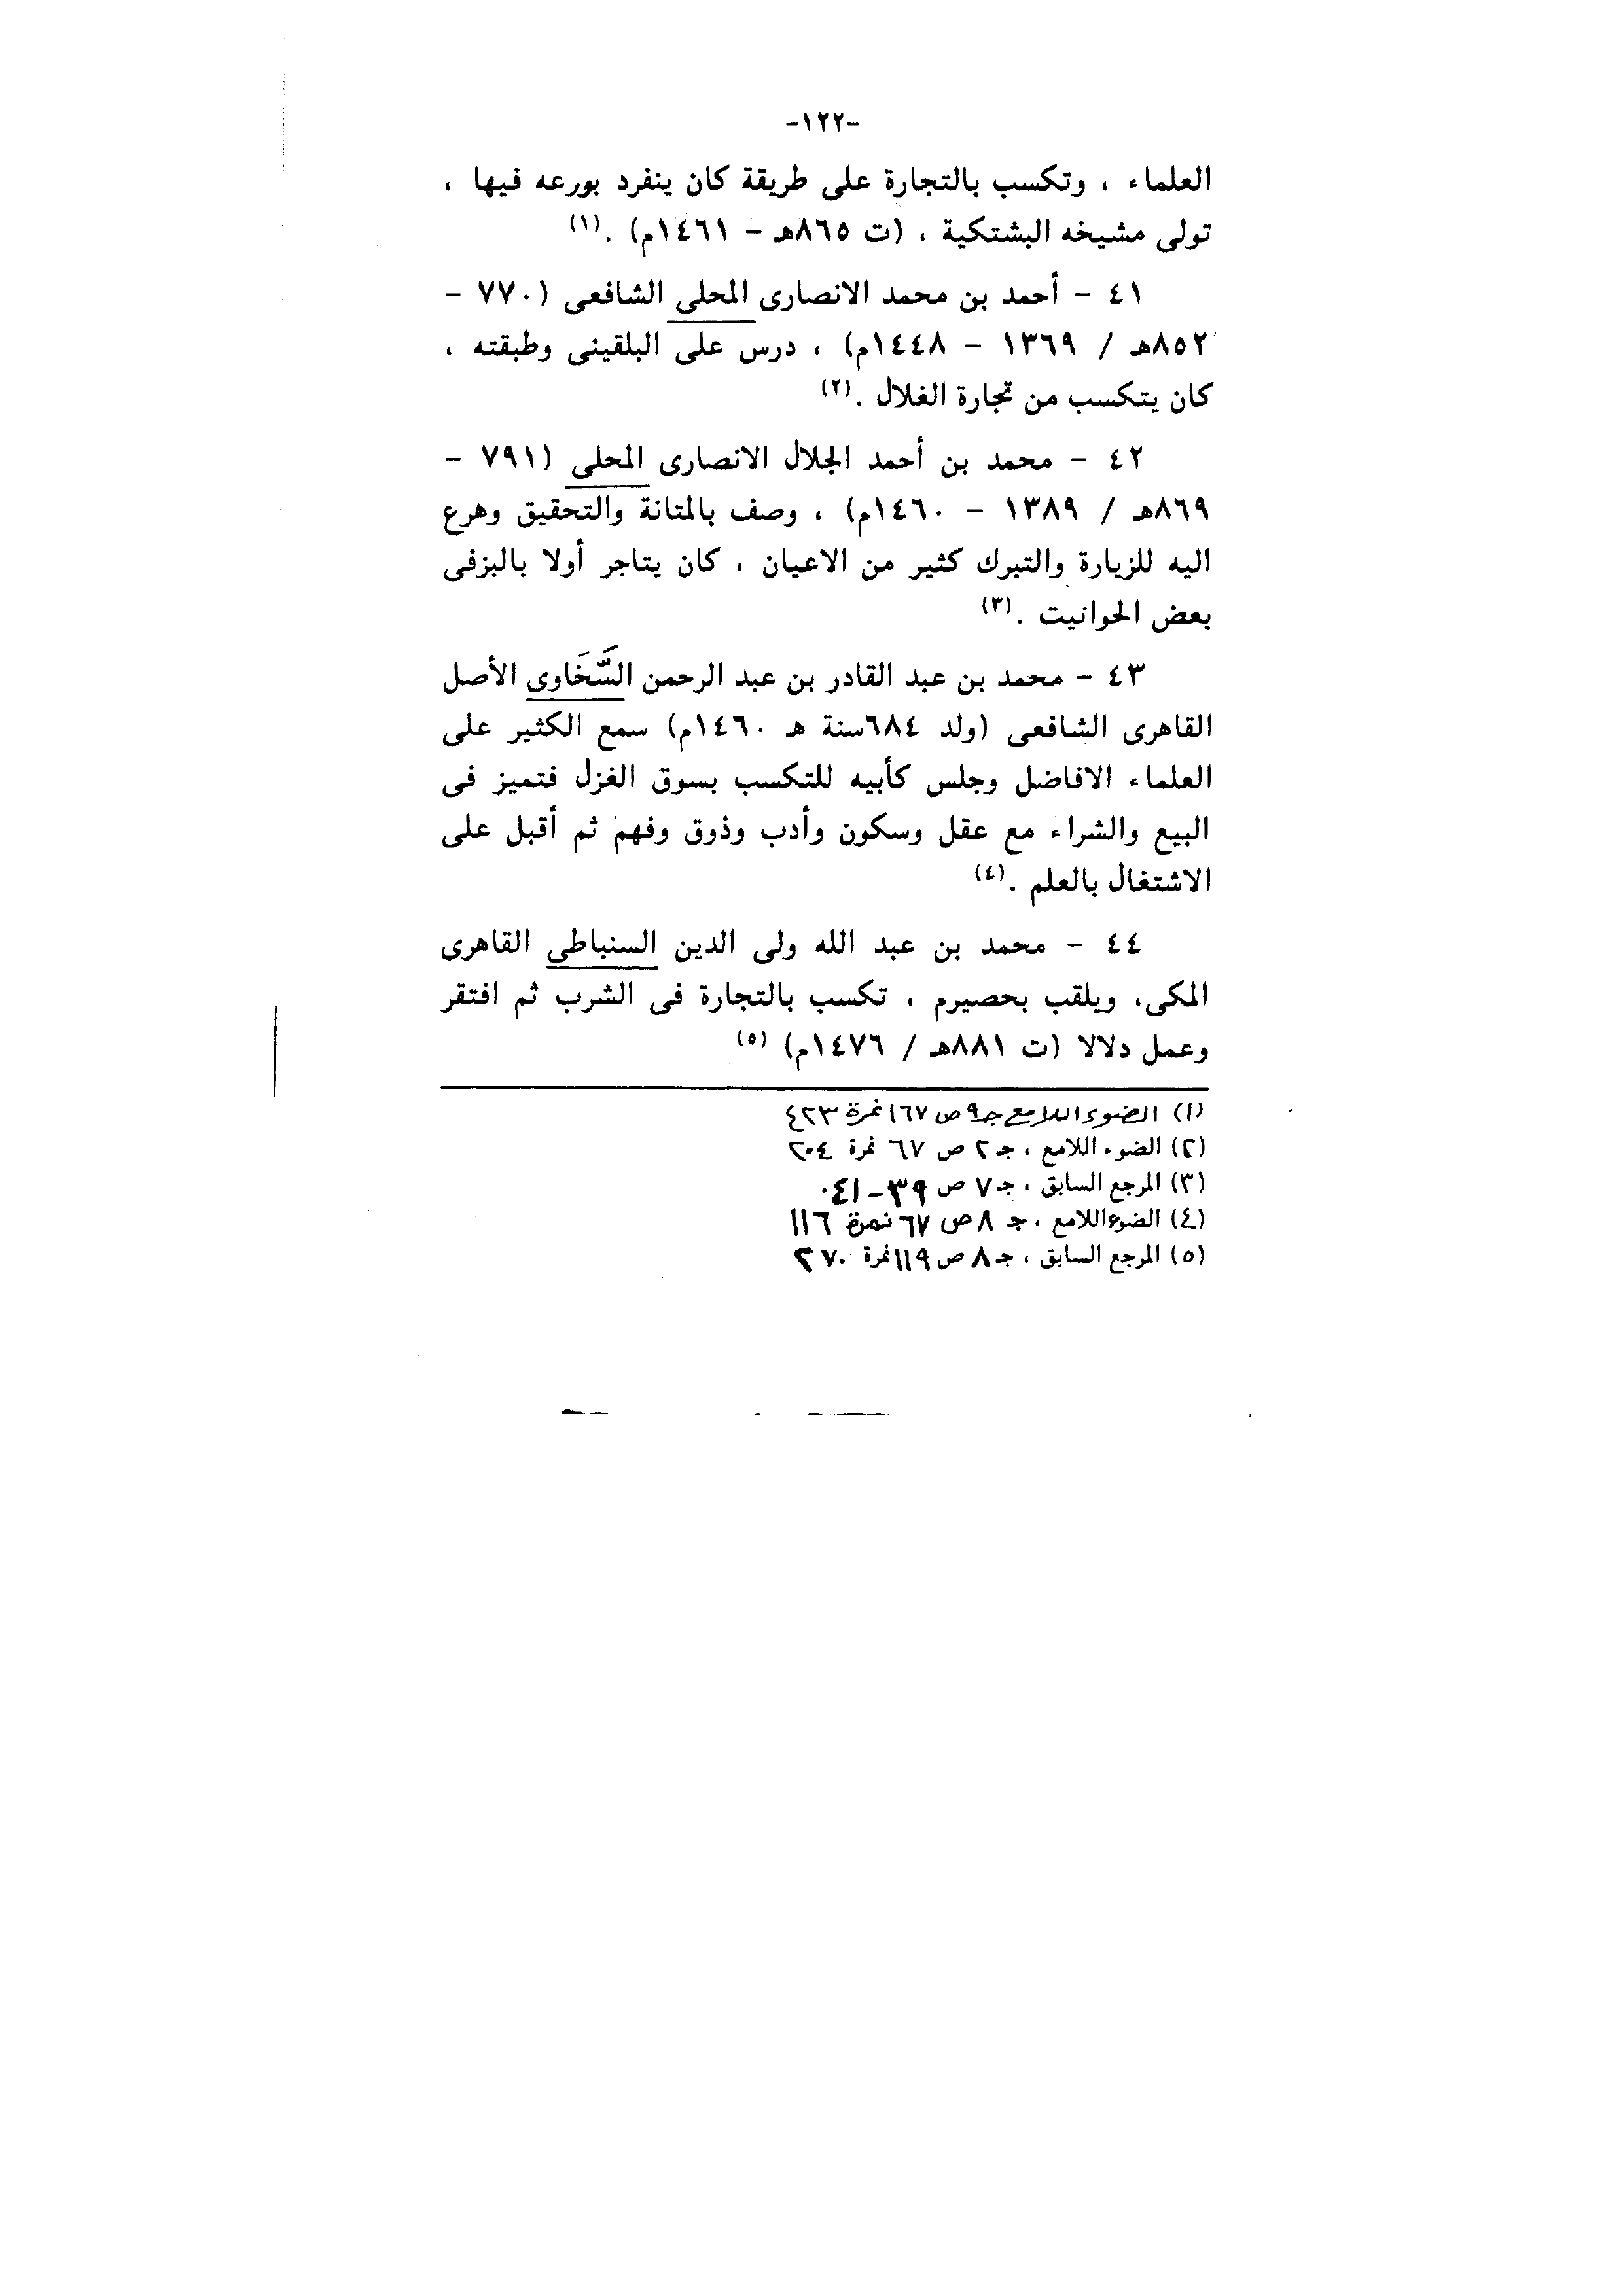 -١٢٢-
العلماء ، وتكسب بالتجارة على طريقة كان ينفرد بورعه فيها ،
تولى مشيخه البشتكية ، (ت ٨٦٥هـ - ١٤٦١م) .(١)
٤١ - أحمد بن محمد الانصارى المحلى الشافعى (٧٧٠ -
٨٥٢هـ / ١٣٦٩ - ١٤٤٨م) ، درس على البلقينى وطبقته ،
كان يتكسب من تجارة الغلال .(٢)
٤٢ - محمد بن أحمد الجلال الانصارى المحلى (٧٩١ -
٨٦٩هـ / ١٣٨٩ - ١٤٦٠م) ، وصف بالمتانة والتحقيق وهرع
اليه للزيارة والتبرك كثير من الاعيان ، كان يتاجر أولا بالبزفى
بعض الحوانيت .(٣)
٤٣ - محمد بن عبد القادر بن عبد الرحمن السَّخَاوى الأصل
القاهرى الشافعى (ولد ٦٨٤سنة هـ ١٤٦٠م) سمع الكثير على
العلماء الافاضل وجلس كأبيه للتكسب بسوق الغزل فتميز فى
البيع والشراء مع عقل وسكون وأدب وذوق وفهم ثم أقبل على
الاشتغال بالعلم .(٤)
٤٤ - محمد بن عبد الله ولى الدين السنباطى القاهرى
المكى، ويلقب بحصيرم ، تكسب بالتجارة فى الشرب ثم افتقر
وعمل دلالا (ت ٨٨١هـ / ١٤٧٦م) (٥)
(١) الضوء اللامع جـ٩ ص ١٦٧ نمرة ٤٢٣
(٢) الضوء اللامع ، جـ ٢ ص ٦٧ نمرة ٢٠٤
(٣) المرجع السابق ، جـ ٧ ص ٣٩-٤١.
(٤) الضوء اللامع ، جـ ٨ ص ٦٧ نمرة ١١٦
(٥) المرجع السابق ، جـ ٨ ص ١١٩ نمرة ٢٧٠